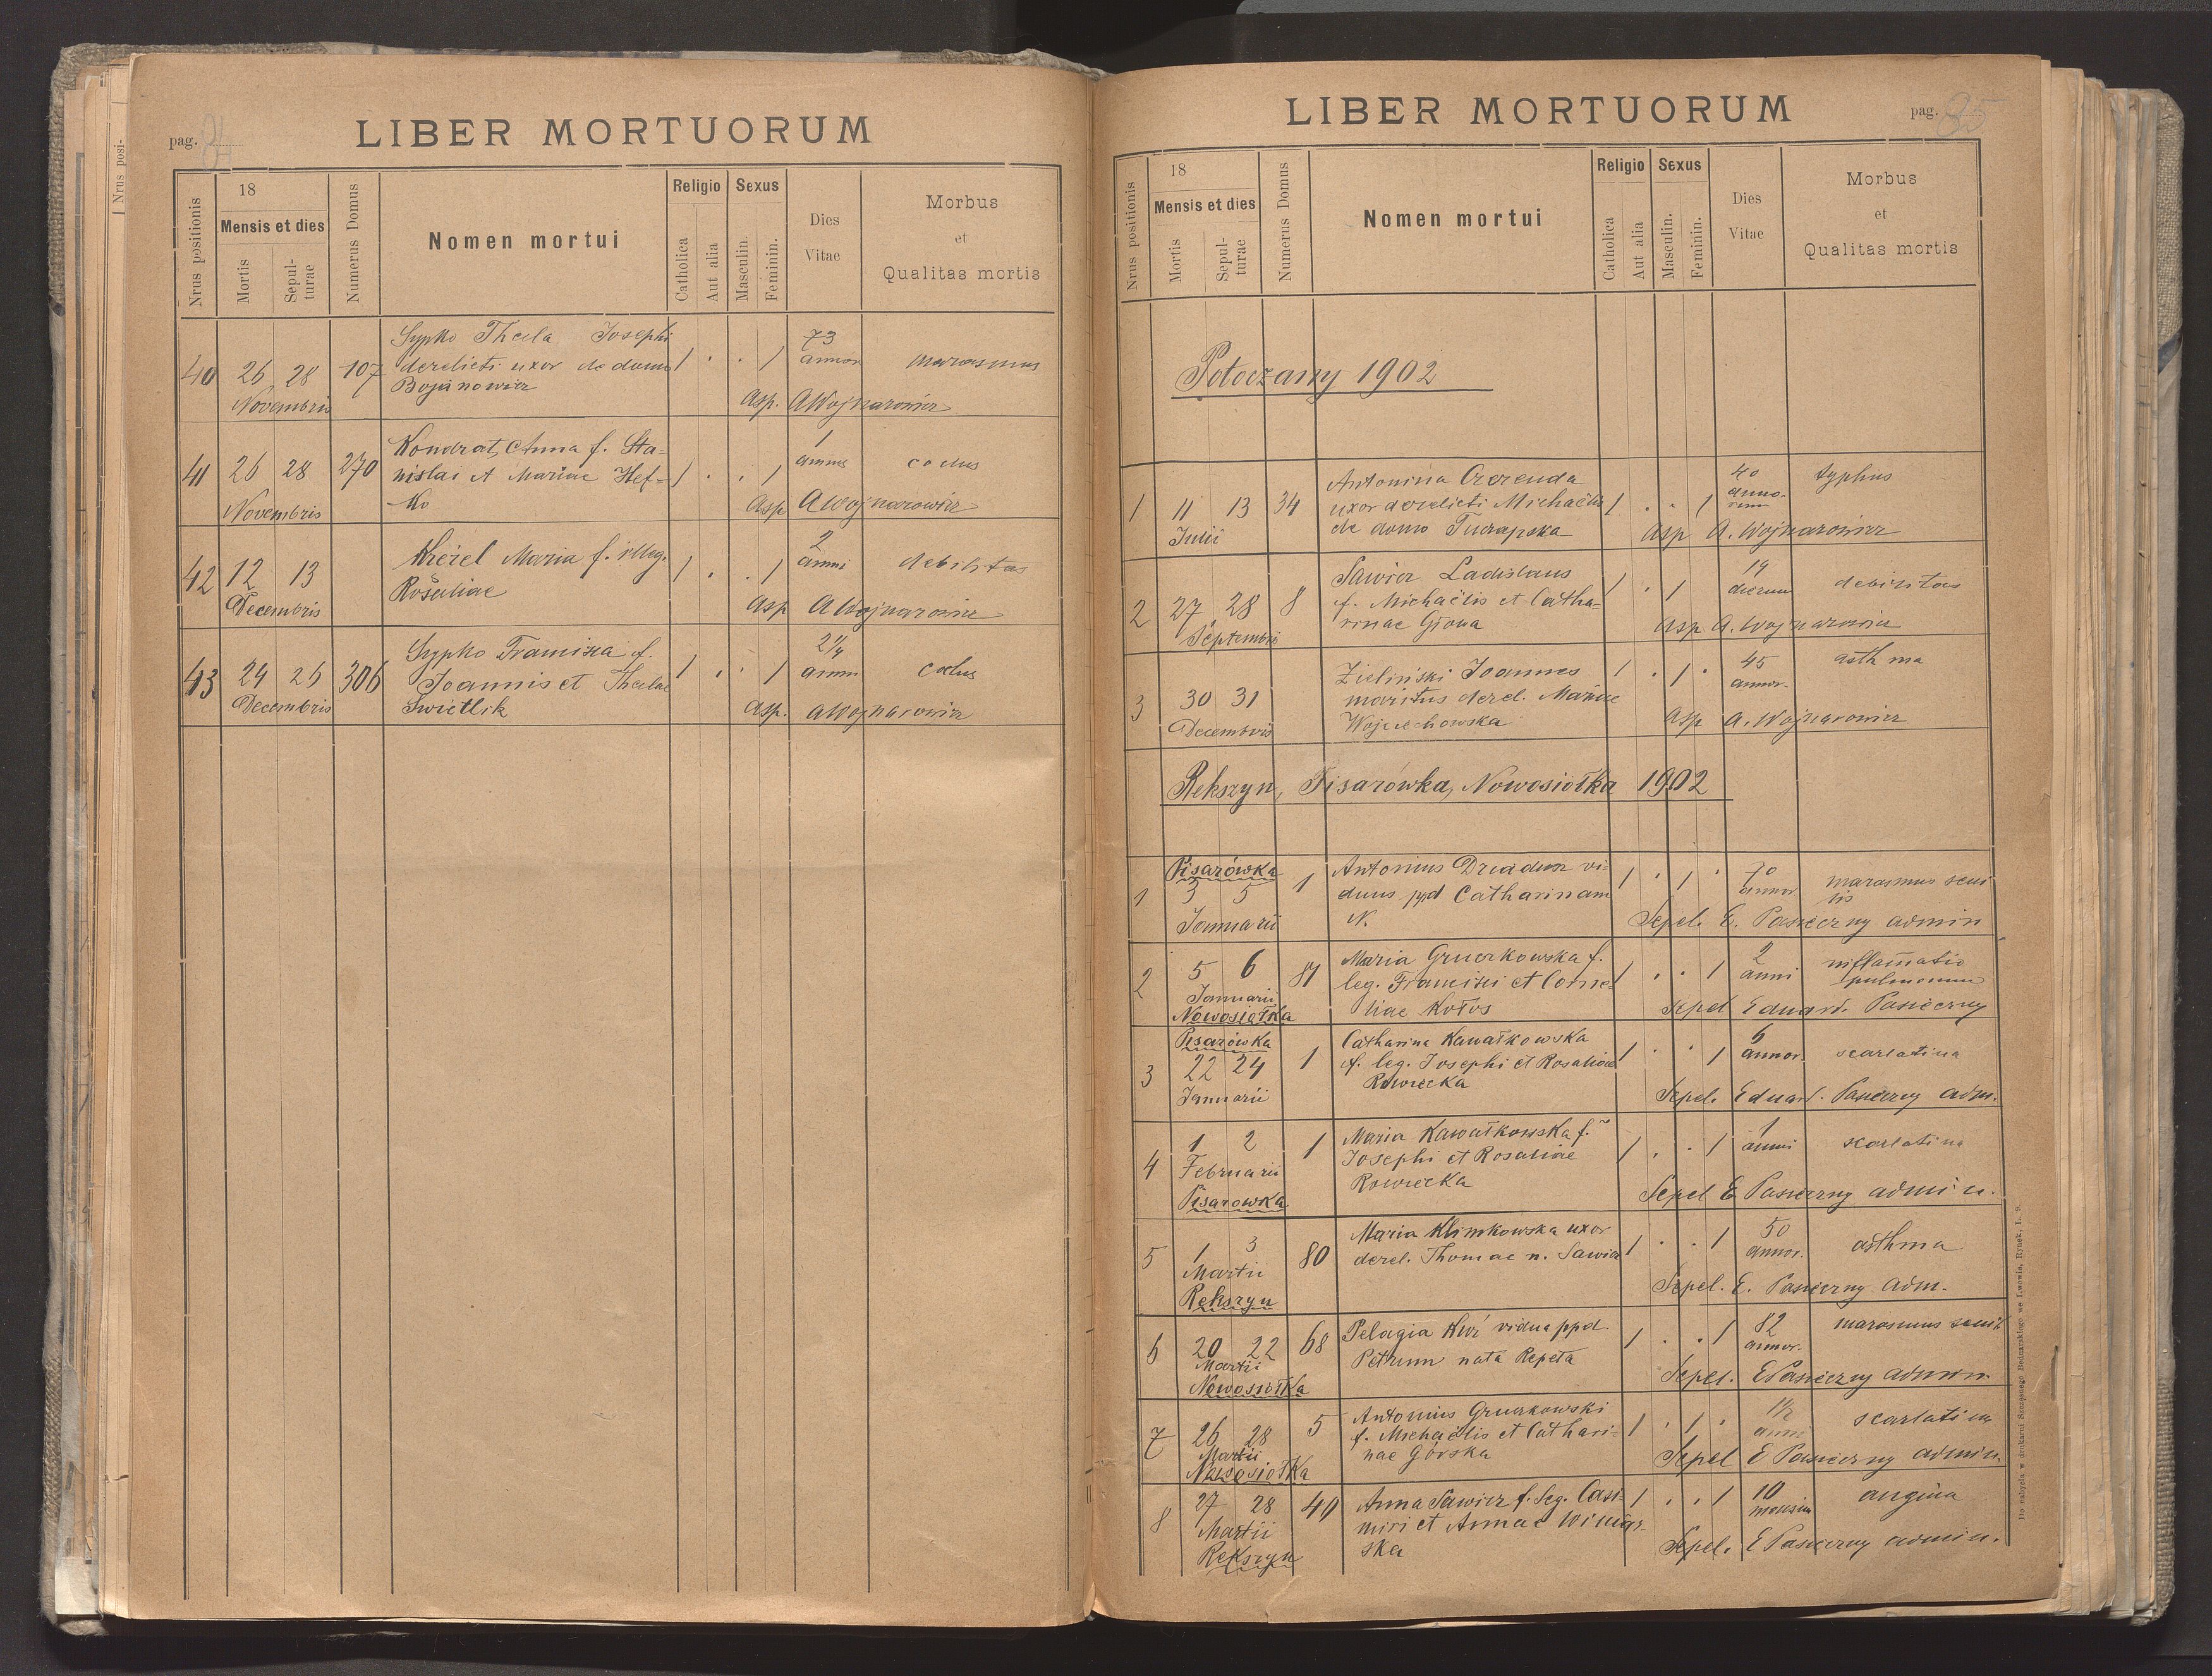 pag. 84
LIBER MORTUORUM
Nrus positionis
18
Mensis et dies
Mortis
Sepul-
turae
Numerus Domus
Nomen mortui
Religio
Catholica
Aut alia
Sexus
Masculin.
Feminin.
Dies
Vitae
Morbus
et
Qualitas mortis
40 26 28 107
Novembris
Sypko Thecla Josephi
derelicti uxor de domo
Bojanowicz
1 . . 1
73
annor
marasmus
Asp. AWojnarowicz
41 26 28 270
Novembris
Kondrat, Anna f. Sta-
nislai et Mariae Hef-
ko
1 . . 1
1
annus
Asp AWojnarowicz
42 12 13
Decembris
Maria f. illeg.
Rosaliae
1 . . 1
2
anni
debilitas
Asp AWojnarowicz
43 24 26 306
Decembris
Sypko Francisca f.
Joannis et Theclae
Swietlik
1 . . 1
2 1/4
anni
Asp. AWojnarowicz
pag. 85
LIBER MORTUORUM
Nrus positionis
18
Mensis et dies
Mortis
Sepul-
turae
Numerus Domus
Nomen mortui
Religio
Catholica
Aut alia
Sexus
Masculin.
Feminin.
Dies
Vitae
Morbus
et
Qualitas mortis
Potoczany 1902
1 11 13 34
Julii
Antonina Czerenda
uxor derelicti Michaëlis
de domo Tuczapska
1 . . 1
40
anno-
rum
typhus
Asp A. Wojnarowicz
2 27 28 8
Septembris
Sawicz Ladislaus
f. Michaëlis et Catha-
rinae Głowa
1 . 1
19
dierum
debilitas
Asp A. Wojnarowicz
3 30 31
Decembris
Zieliński Joannes
maritus derel. Mariae
Wojciechowska
1 . 1 .
45
annor.
asthma
Asp A. Wojnarowicz
Rekszyn, Pisarówka, Nowosiołka 1902
Pisarówka
1 3 5 1
Januarii
Antonius Dziadun vi-
duus ppd Catharinam
N.
1 . 1 .
70
annor
marasmus seni
lis
Sepel. E. Pasieczny admin
2 5 6 81
Januarii
Nowosiołka
Maria Gruczkowska f.
leg. Francisci et Corne-
liae Kotos
1 . . 1
2
anni
inflamatio
pulmonum
Sepel Eduard. Pasieczny
Pisarówka
3 22 24 1
Januarii
Catharina Kawałkowska
f. leg. Josephi et Rosaliae
Rowiecka
1 . . 1
6
annor.
scarlatina
Sepel. Eduard. Pasieczny adm.
4 1 2 1
Februarii
Pisarowka
Maria Kawałkowska f.
Josephi et Rosaliae
Rowiecka
1 . . 1
1
anni
scarlatina
Sepel E Pasieczny admin.
5 1 3 80
Martii
Rekszyn
Maria Klimkowska uxor
derel. Thomae n. Sawicz
1 . . 1
50
annor.
asthma
Sepel. E. Pasieczny adm.
6 20 22 68
Martii
Nowosiołka
Pelagia vidua ppd.
Petrum nata Repeta
1 . . 1
82
annor.
marasmus senil
Sepel. E Pasieczny admin.
7 26 28 5
Martii
Nowosiołka
Antonius Gruczkowski
f. Michaëlis et Cathari-
nae Górska
1 . 1 .
1 1/2
anni
scarlatina
Sepel E Pasieczny admin.
8 27 28 49
Martii
Rekszyn
Anna Sawicz f. leg. Casi-
miri et Annae
ska
1 . . 1
10
mensium
angina
Sepel. E Pasieczny admin.
Do nabycia w drukarni Szczęsnego Bednarskiego we Lwowie, Rynek, L. 9.